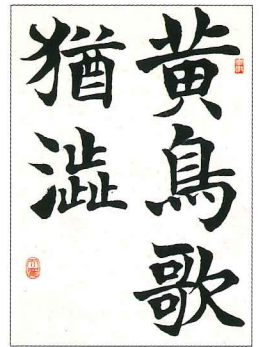 黄鳥歌
猶澁